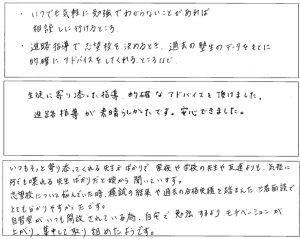 ・いつでも気軽に勉強でわからないことがあれば
相談しに行けるところ
・進路指導で志望校を決めるとき、過去の塾生のデータをもとに
的確にアドバイスをしてくれるところなど、
生徒に寄り添った指導、的確なアドバイスを頂けました。
進路指導が素晴らしかったです。安心できました。
いつもそっと寄り添ってくれる先生ばかりで家族や学校の先生や友達よりも、気軽に
何でも喋れる先生ばかりだと娘から聞いています。
志望校について悩んでいた時、模試の結果や過去の合格実績を踏まえた三者面談で
とても分かりやすかったです。
自習室がいつも開放されている為、自宅で勉強するよりモチベーションが
上がり、集中して取り組めたようです。